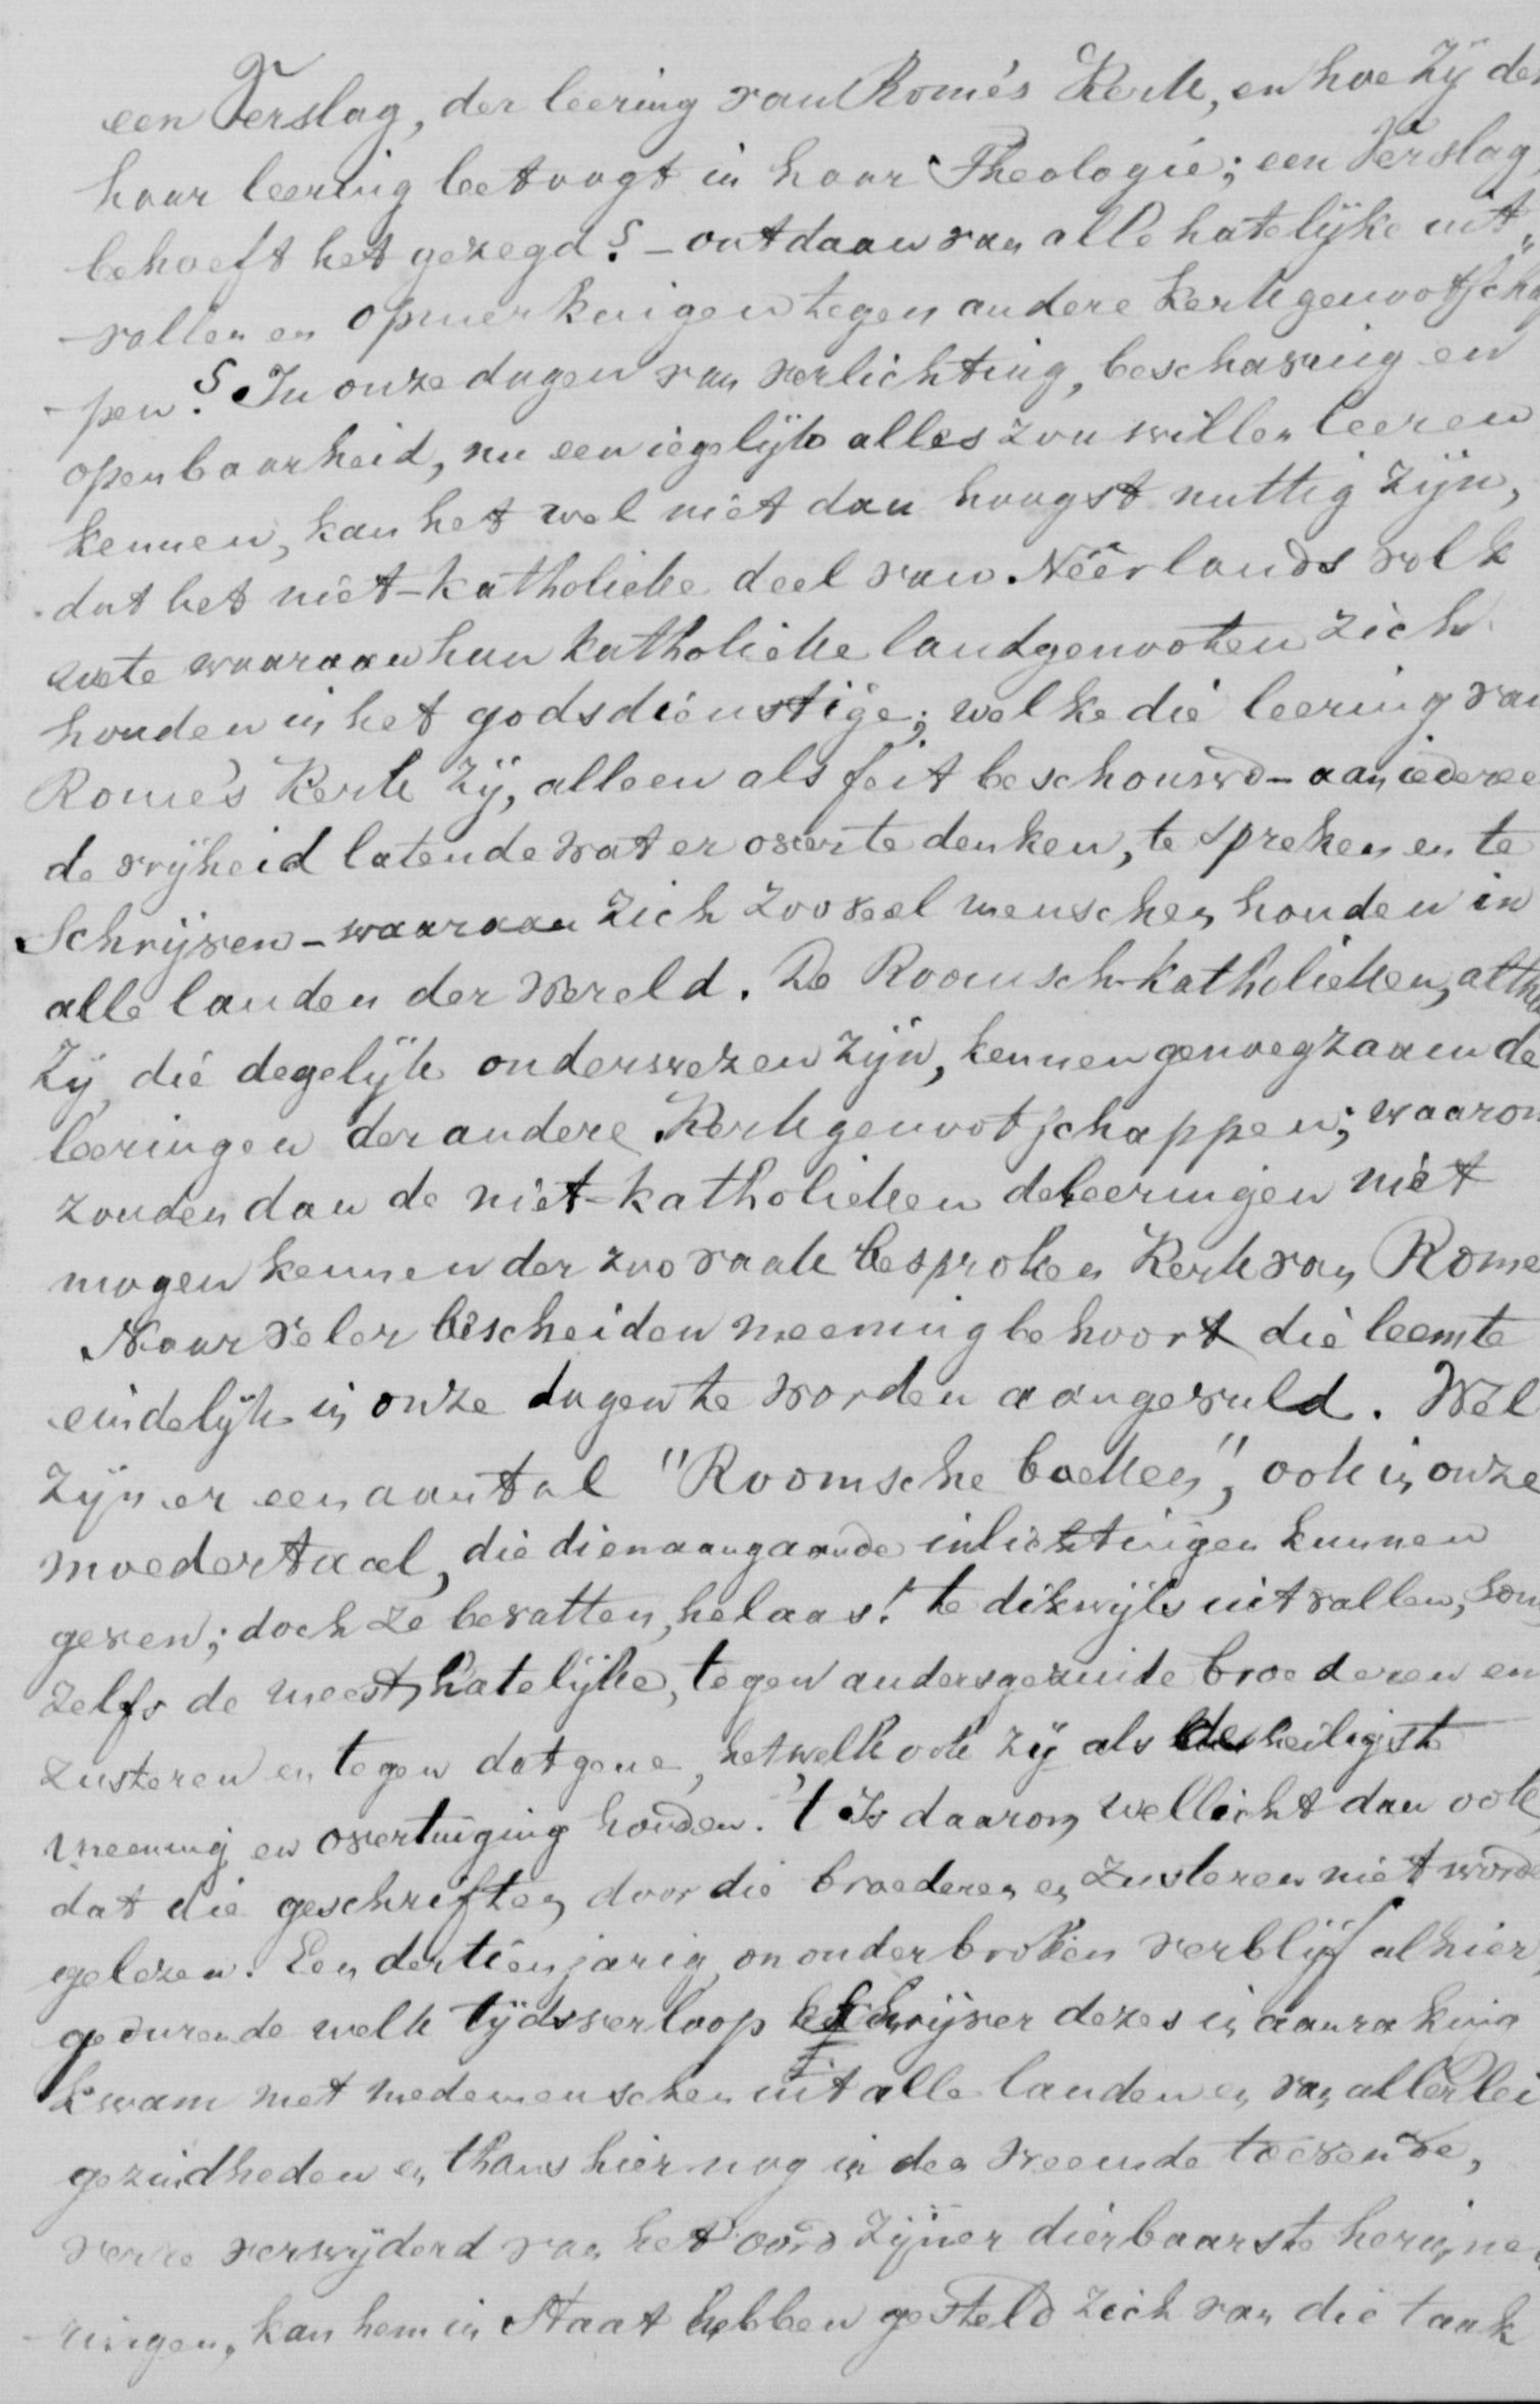 een Verslag, der leering van Rome's Kerk, en hoe Zij de
haar leering betoogt in haar Theologie; een Verslag,
behoeft het gezegd? – ontdaan van alle hatelijke uit„
-vallen en opmerkingen tegen andere Kerkgenootscha
-pen? In onze dagen van verlichting, beschaving en
openbaarheid, nu een iegelijk alles zou willen leeren
kennen, kan het wel niet dan hoogst nuttig zijn,
dat het niet-katholieke deel van Neêrlands volk
wete waaraan hun katholieke landgenooten zich
houden in het godsdienstige; welke die leering van
Rome's Kerk zij, alleen als feit beschouwd – aan iederee
de vrijheid latende wat er over te denken, te spreken en te
Schrijven – waaraan zich zooveel menschen houden in
alle landen der Wereld. De Roomsch-Katholieken, altha
Zij, die degelijk onderwezen zijn, kennen genoegzaam de
leeringen der andere Kerkgenootschappen; waarom
zouden dan de niet-katholieken de leeringen niet
mogen kennen der zoo vaak besproken Kerk van Rome
Naar veler bescheiden meening behoort die leemte
eindelijk in onze dagen te worden aangevuld. Wel
zijn er een aantal "Roomsche boeken", ook in onze
moedertaal, die dienaangaande inlichtingen kunnen
geven; doch ze bevatten, helaas! te dikwijls uitvallen, som
zelfs de meest hatelijke, tegen andersgezinde broederen en
zusteren en tegen datgene, hetwelk ook zij als heiligste
meening en overtuiging houden. 't Is daarom wellicht dan ook,
dat die geschriften door die broederen en zusteren niet worde
gelezen. Een dertienjarig ononderbroken verblijf alhier,
gedurende welk tijdsverloop schrijver dezes in aanraking
kwam met medemenschen uit alle landen en van allerlei
gezindheden en thans hier nog in den vreemde toevende,
verre verwijderd van het oord zijner dierbaarste herinne
-ringen, kan hem in Staat hebben gesteld zich van die taak